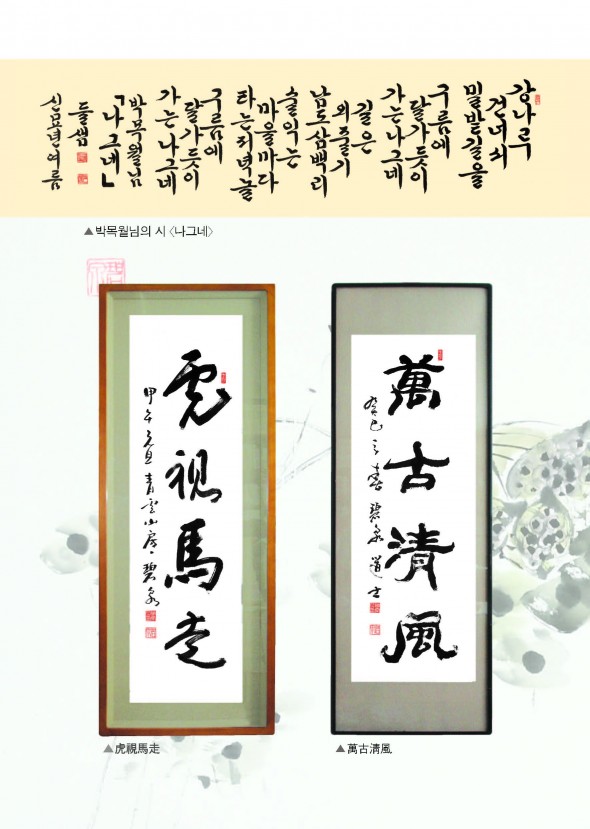 강나루
건너서
밀밭길을
구름에
달가듯이
가는 나그네
길은
외줄기
남도 삼백리
술 익는
마을마다
타는 저녁놀
구름에
달가듯이
가는 나그네
박목월님
「나그네」
들샘
신묘년 여름
▲박목월님의 시 〈나그네〉
虎視馬走
甲午元旦 青雲山房 碧泉
▲虎視馬走
萬古清風
癸巳 春 碧泉 道士
▲萬古清風